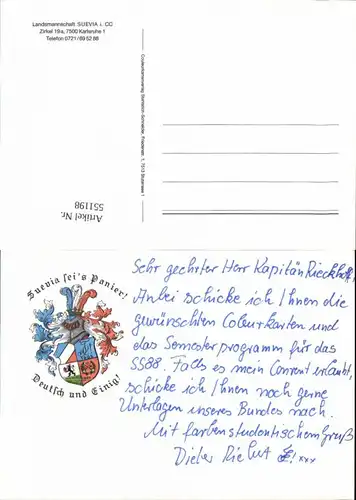 Landsmannschaft SUEVIA i. CC
Zirkel 19a, 7500 Karlsruhe 1
Telefon 0721/69 52 88
Artikel Nr.
551198
Suevia sei's Panier!
Deutsch und Einig!
Sehr geehrter Herr Kapitän Rieckhoff,
Anbei schicke ich Ihnen die
gewünschten Couleurkarten und
das Semesterprogramm für das
SS88. Falls es mein Convent erlaubt,
schicke ich Ihnen noch gerne
Unterlagen unseres Bundes nach.
Mit farbenstudentischem Gruß
Dieter